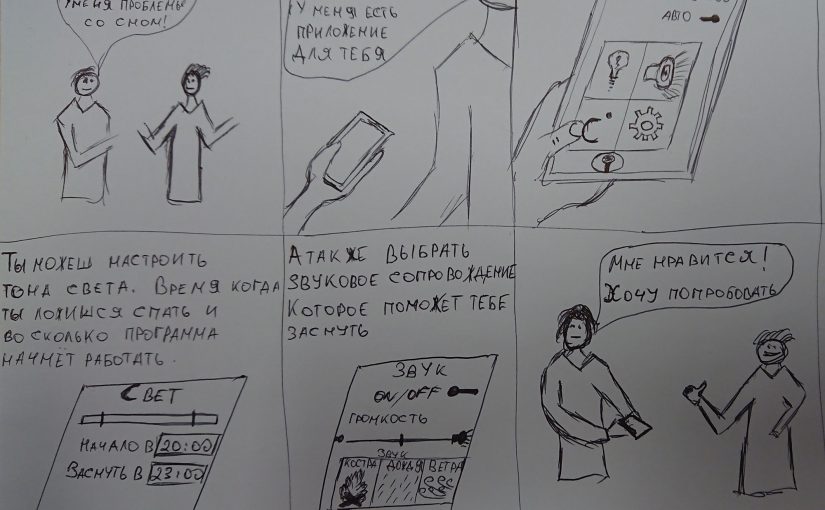 У меня проблемы
со сном!
У меня есть
приложение
для тебя
Авто
C°
Ты можеш настроить
тона света. Время когда
ты ложишся спать и
во сколько программа
начнёт работать.
Свет
Начало в 20:00
Заснуть в 23:00
А также выбрать
звуковое сопровождение
которое поможет тебе
заснуть
Звук
ON/OFF
Громкость
Звук
Костра Дождя Ветра
Мне нравится!
Хочу попробовать